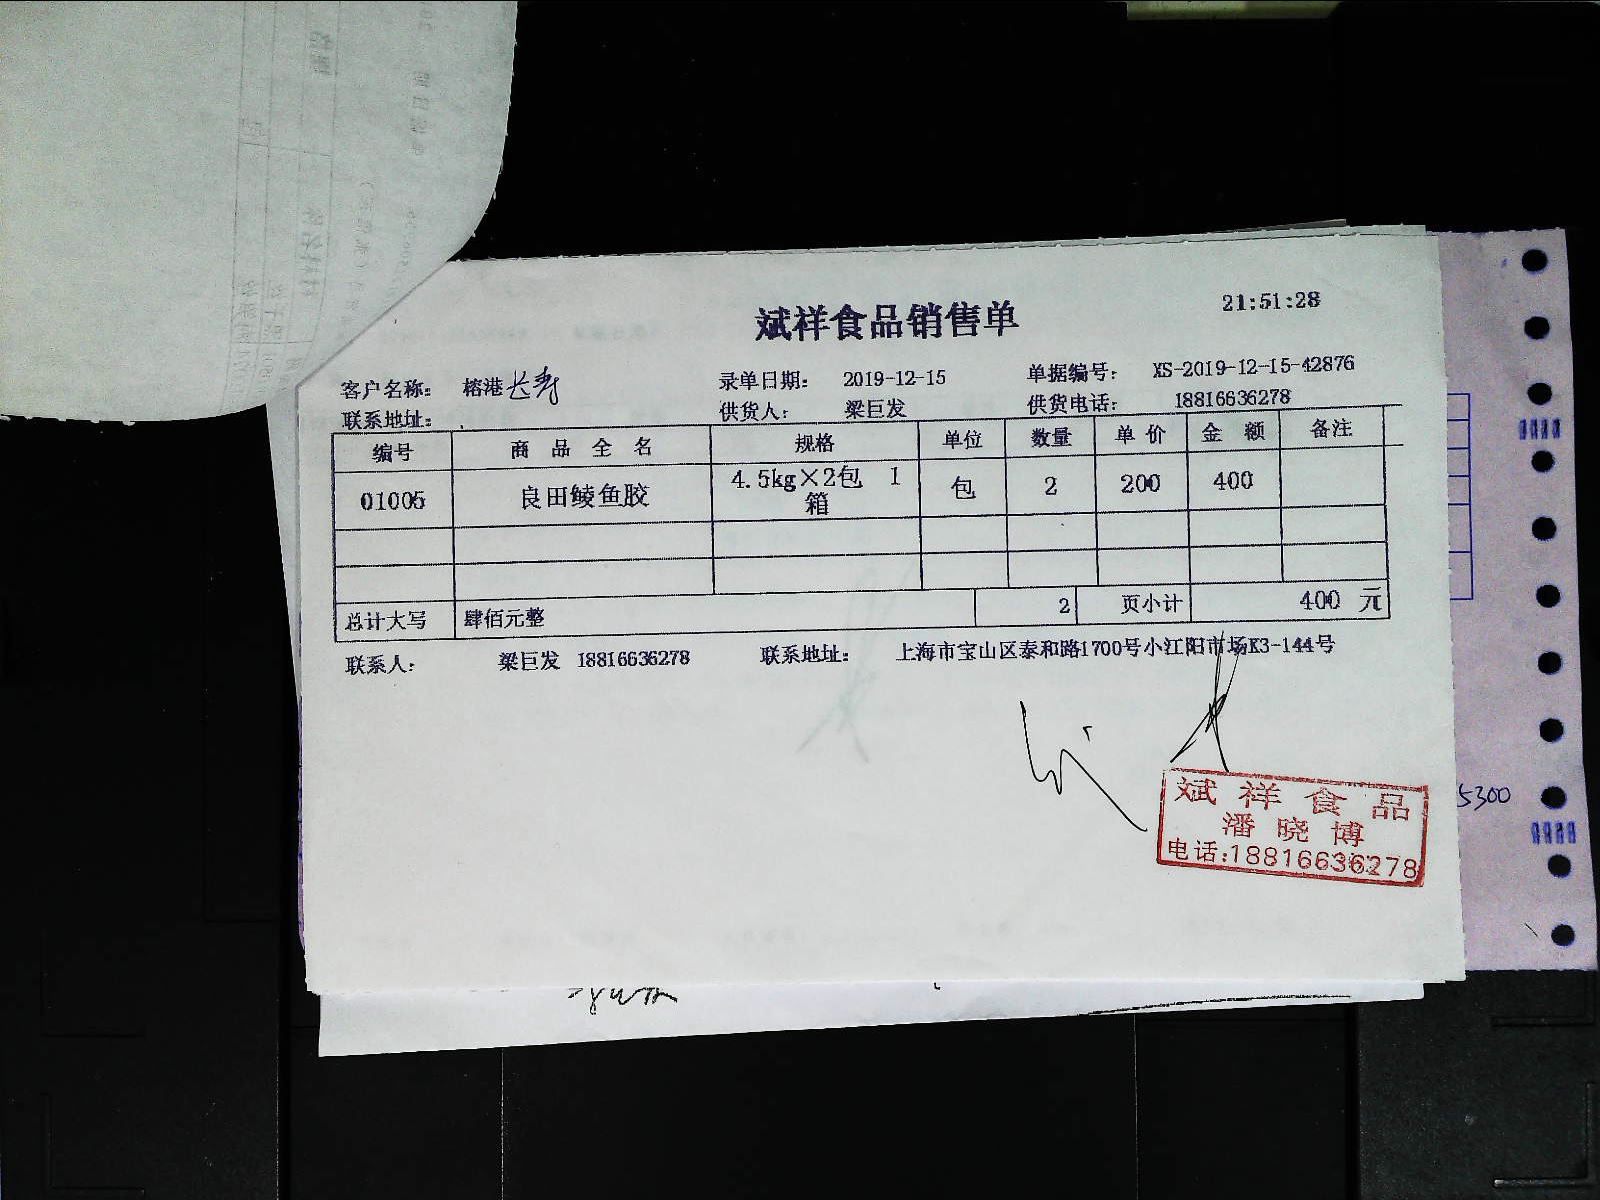 斌祥食品销售单
21:51:28
客户名称： 榕港长寿 录单日期： 2019-12-15 单据编号： XS-2019-12-15-42876
联系地址： 供货人： 梁巨发 供货电话： 18816636278
编号 商品全名 规格 单位 数量 单价 金额 备注
01005 良田鲮鱼胶 4.5kg×2包 1箱 包 2 200 400
总计大写 肆佰元整 2 页小计 400 元
联系人： 梁巨发 18816636278 联系地址： 上海市宝山区泰和路1700号小江阳市场K3-144号
斌祥食品
潘晓博
电话:18816636278
5300